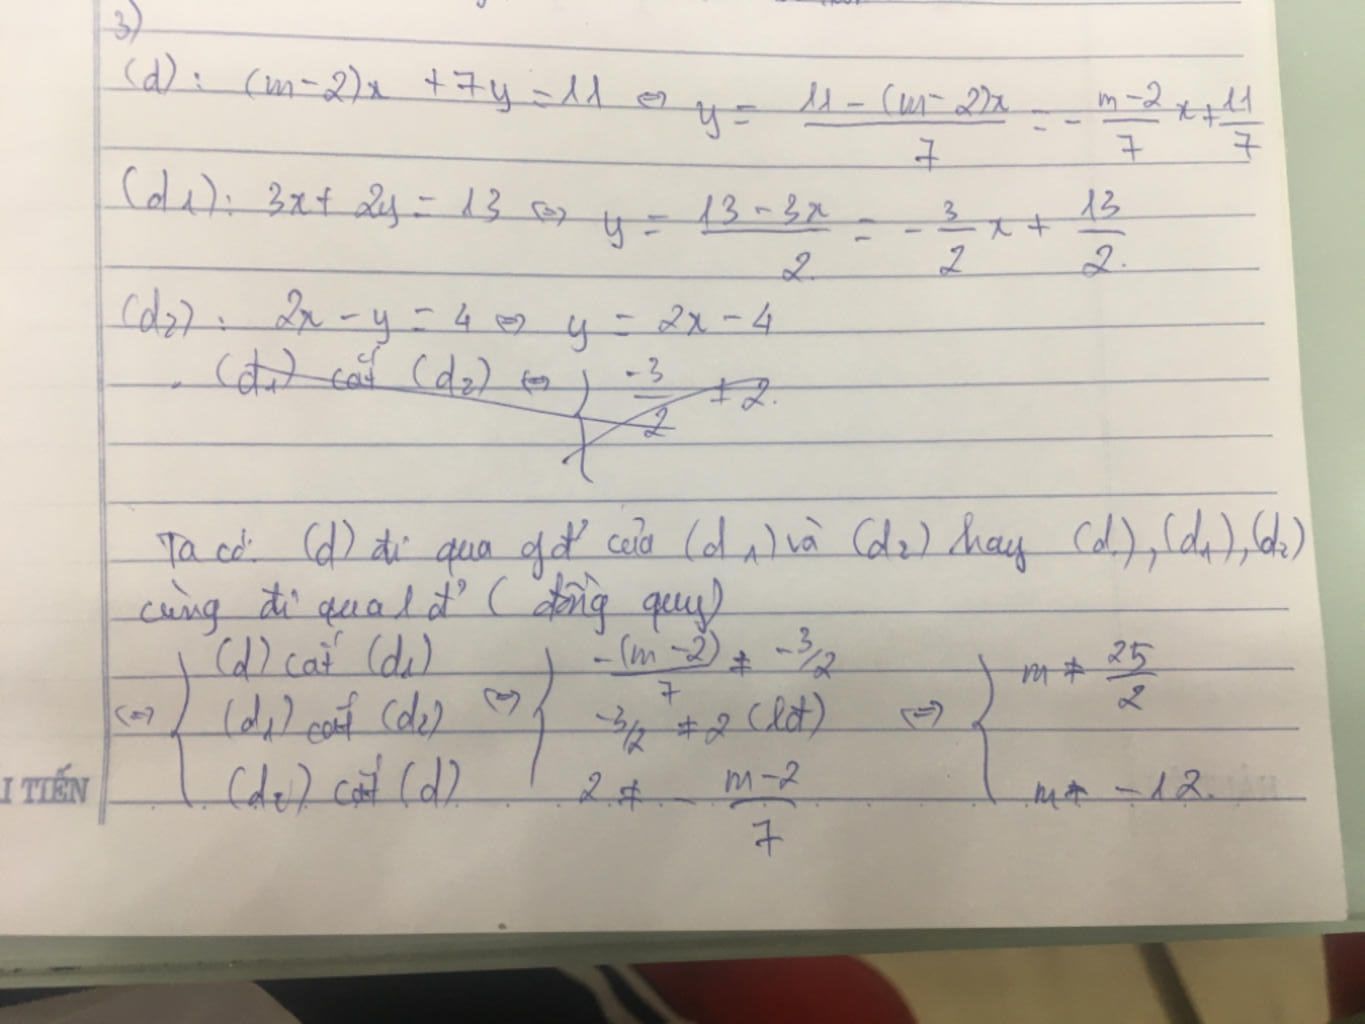 3)
(d): (m-2)x + 7y = 11 ⇔ y = \frac{11 - (m-2)x}{7} = -\frac{m-2}{7}x + \frac{11}{7}
(d1): 3x + 2y = 13 ⇔ y = \frac{13 - 3x}{2} = -\frac{3}{2}x + \frac{13}{2}.
(d2): 2x - y = 4 ⇔ y = 2x - 4
. (d1) cắt (d2) ⇔ { \frac{-3}{2} ≠ 2.
Ta có: (d) đi qua gđ' của (d1) và (d2) hay (d), (d1), (d2)
cùng đi qua 1 đ' (đồng quy)
⇔ { (d) cắt (d1) ⇔ { \frac{-(m-2)}{7} ≠ -3/2 ⇔ { m ≠ \frac{25}{2}
(d1) cắt (d2) -3/2 ≠ 2 (lđ)
(d2) cắt (d) 2 ≠ -\frac{m-2}{7} m ≠ -12.
I TIẾN